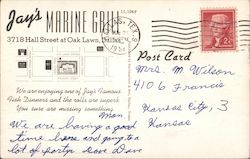 Jay's MARINE GRILL
3718 Hall Street at Oak Lawn, Dallas
TEX.
1954
2¢
Post Card
We are enjoying one of Jay's Famous
Fish Dinners and the rolls are superb
Sure you are missing something.
Mom,
We are having a good
time here and going to a
lot of partys Love Dave
Mrs. M. Wilson
410 G Francis
Kansas City 3
Kansas